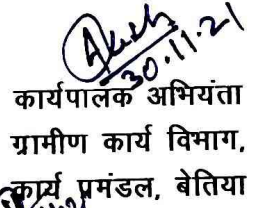 30.11.21
कार्यपालक अभियंता
ग्रामीण कार्य विभाग,
कार्य प्रमंडल, बेतिया